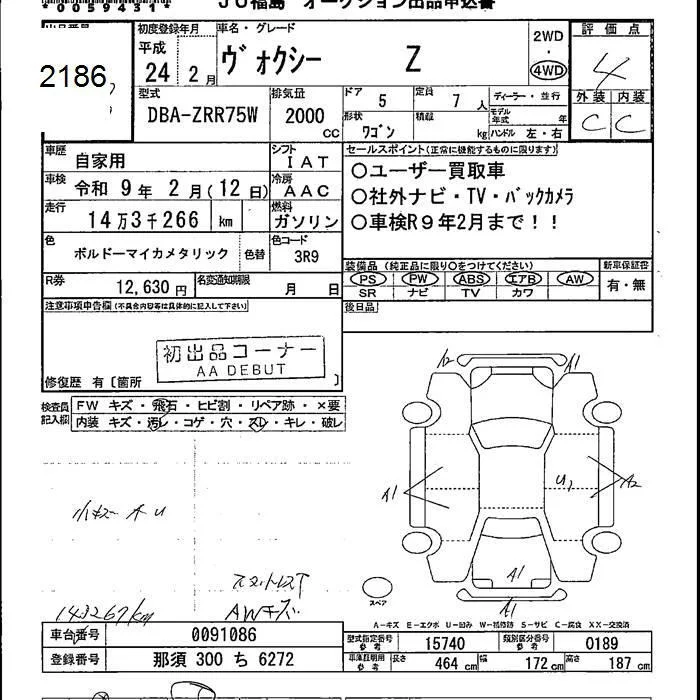 *0059431*
JU福島 オークション出品申込書
出品番号
2186
初度登録年月
平成
24年 2月
車名・グレード
ヴォクシー Z
2WD
・
4WD
評価点
4
外装 内装
C C
型式
DBA-ZRR75W
排気量
2000
cc
ドア 5
定員 7 人
ディーラー・並行
モデル年式 年
形状 ワゴン
積載 kg
ハンドル 左・右
車歴 自家用
シフト IAT
車検 令和 9年 2月(12日)
冷房 AAC
走行 14万3千266 km
燃料 ガソリン
色 ボルドーマイカメタリック
色替
色コード 3R9
R券 12,630円
名変通知期限 月 日
セールスポイント(正常に機能するものに限ります)
○ユーザー買取車
○社外ナビ・TV・バックカメラ
○車検R9年2月まで!!
装備品 (純正品に限り○をつけてください)
新車保証書
PS PW ABS エアB AW
有・無
SR ナビ TV カワ
後日品
注意事項申告欄(不具合内容等は具体的に記入して下さい)
初出品コーナー
AA DEBUT
修復歴 有〔箇所 〕
検査員記入欄
FW キズ・飛石・ヒビ割・リペア跡・×要
内装 キズ・汚レ・コゲ・穴・スレ・キレ・破レ
A2 A1
A1 U1 A2
A1
A1
小キズ A U
スペア
143267km
AWキズ
A-キズ E-エクボ U-凹み W-補修跡 S-サビ C-腐食 XX-交換済
車台番号 0091086
型式指定番号 参考 15740
類別区分番号 参考 0189
登録番号 那須 300 ち 6272
車庫証明用 参考
長さ 464 cm 幅 172 cm 高さ 187 cm